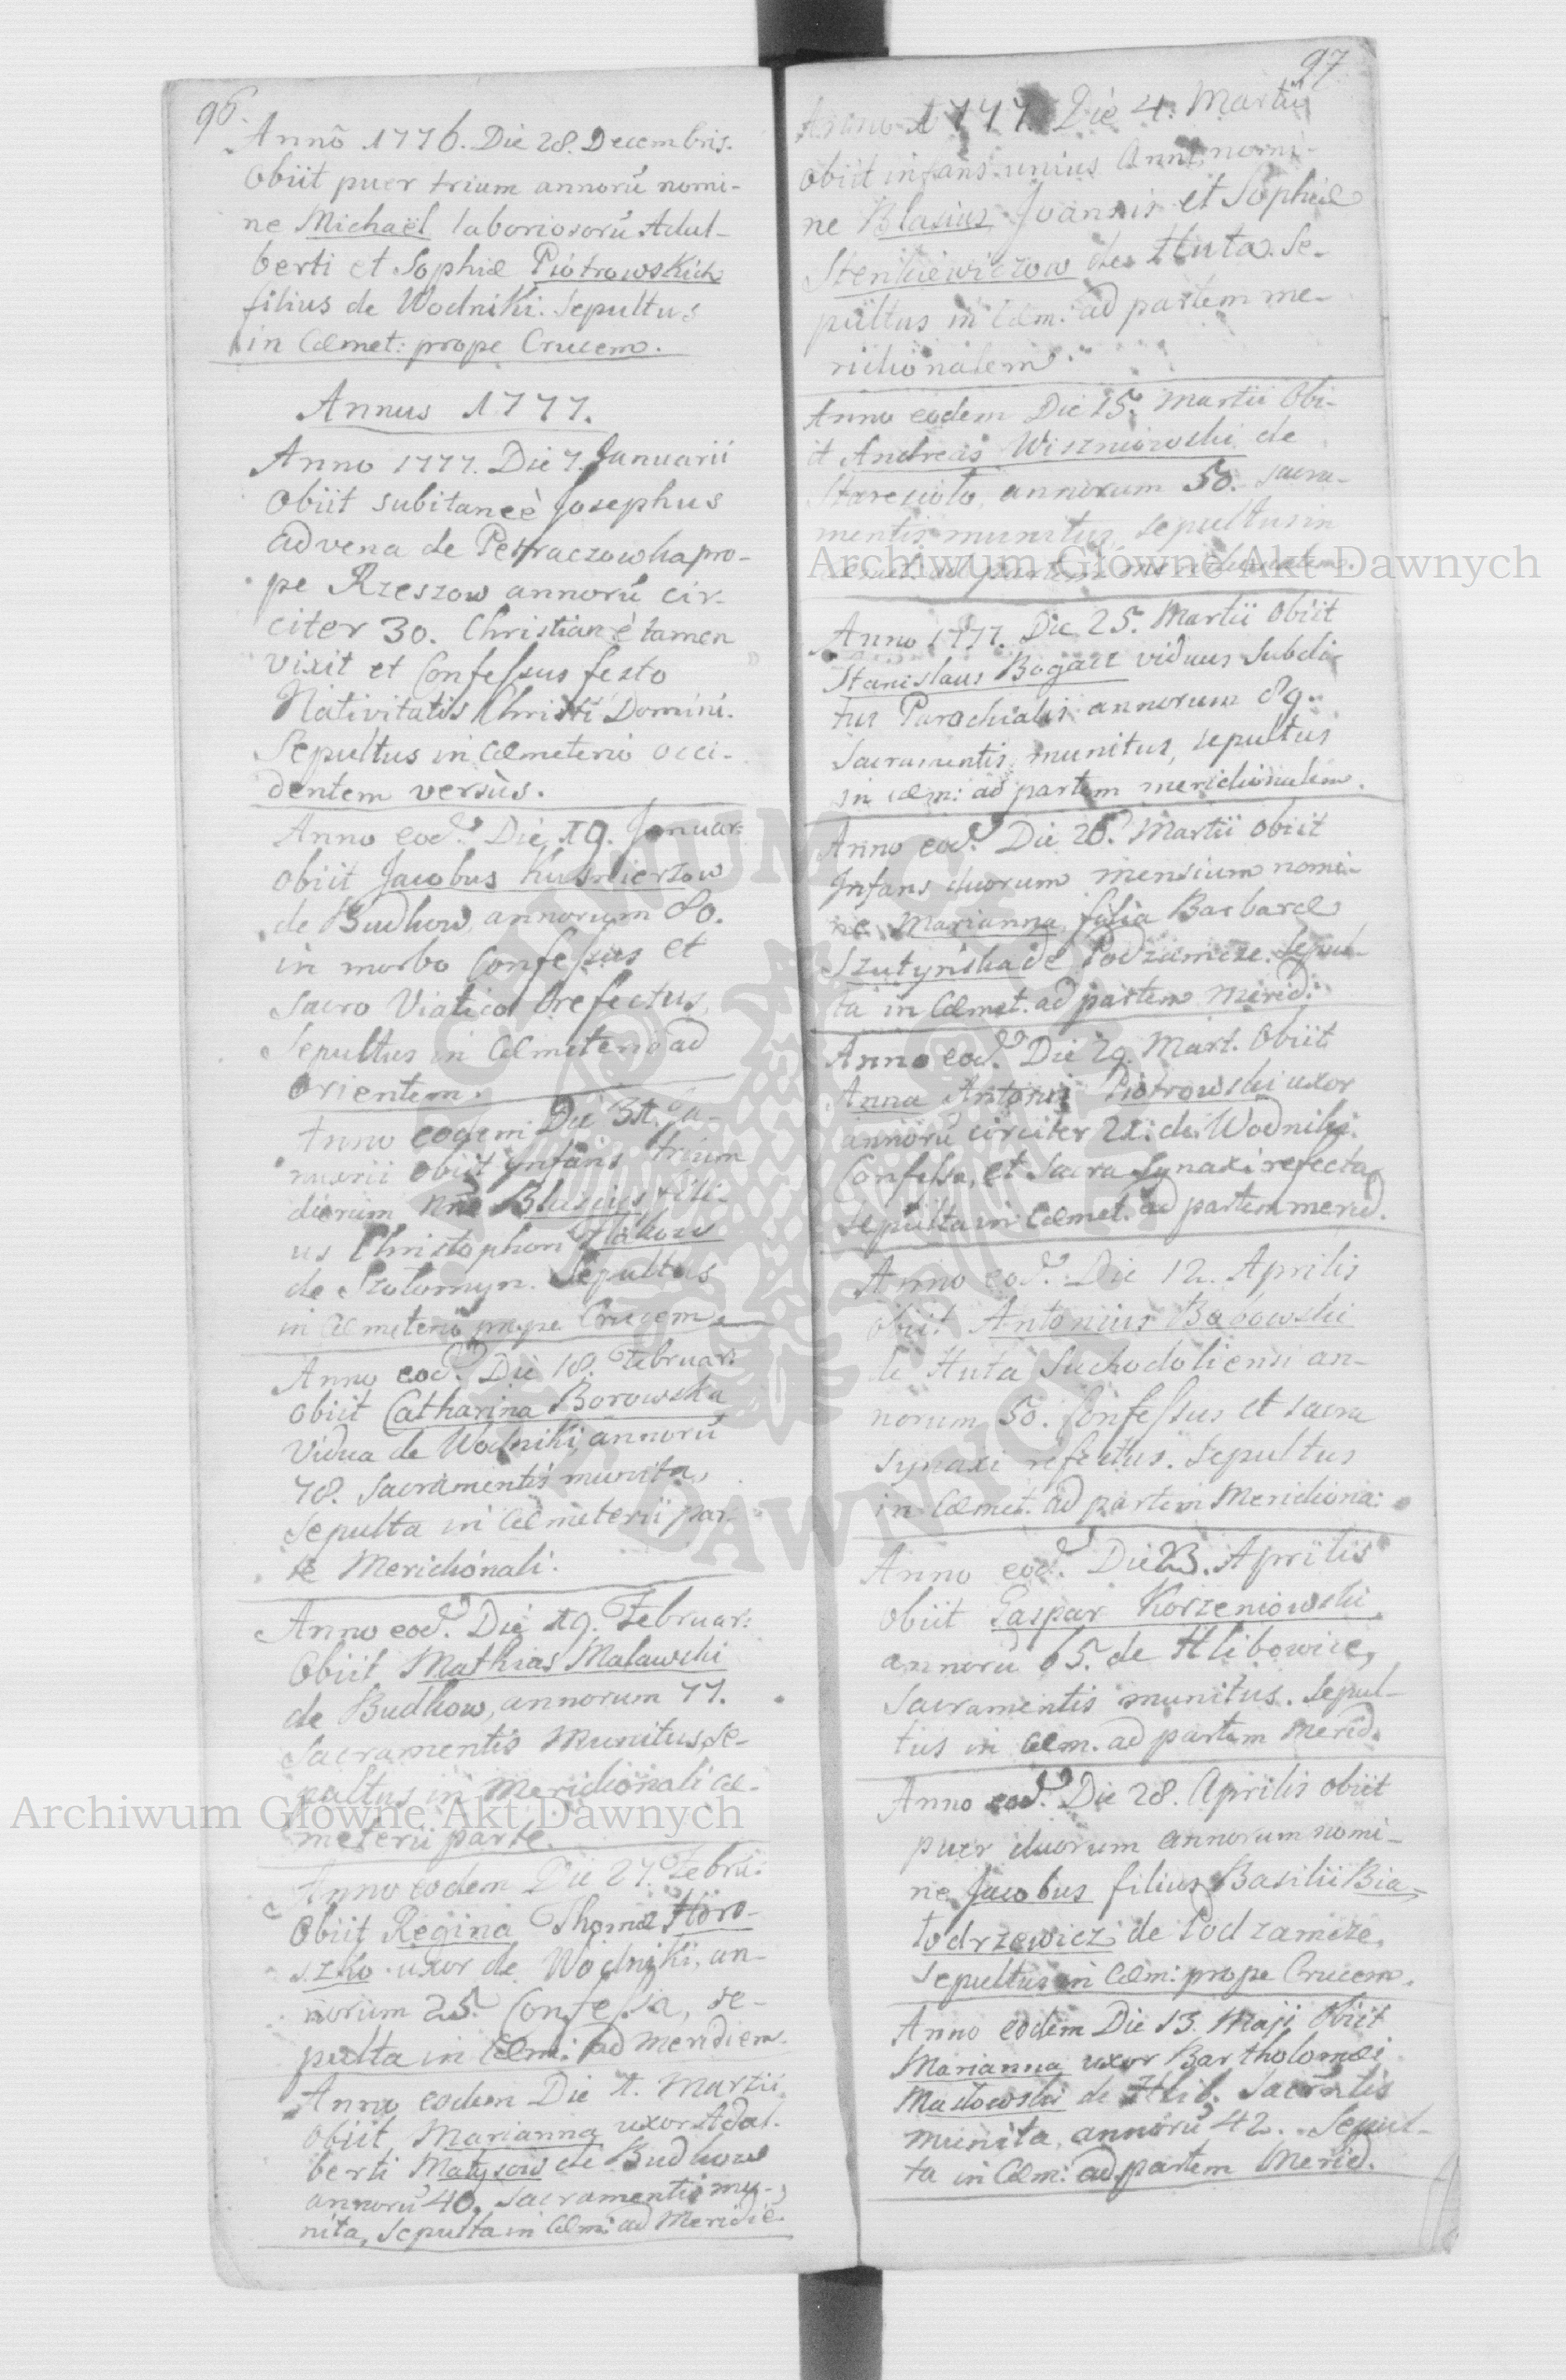 96.
Annō 1776. Die 28. Decembris.
Obiit puer trium annorū nomi-
ne Michaël laboriosorū Adal-
berti et Sophiæ Piotrowskich
filius de Wodniki. Sepultus
in Cæmet: prope Crucem.
Annus 1777.
Anno 1777. Die 7. Januarii
Obiit subitaneè Josephus
advena de Pe pro-
pe Rzeszow annorū cir-
citer 30. Christianè tamen
vixit et Confessus festo
Nativitatis Christi Domini.
Sepultus in Cæmeterio occi-
dentem versùs.
Anno eod. Die 19. Januar:
obiit Jacobus Kusnierzow
de Budkow, annorum 80.
in morbo Confessus et
Sacro Viatico refectus,
Sepultus in Cæmeterio ad
Orientem.
Anno eodem Die 31. Ja-
nuarii obiit Infans trium
dierum nne Blasius fili-
us Christophori
de Szolomyn. Sepultus
in Cæmeterio prope Crucem.
Anno eod. Die 18. Februar:
obiit Catharina Borowska
Vidua de Wodniki, annorū
78. Sacramentis munita,
Sepulta in Cæmeterii par-
te Meridionali.
Anno eod. Die 19. Februar:
Obiit Mathias Malawski
de Budkow, annorum 77.
Sacramentis Munitus, Se-
pultus in Meridionali Cæ-
meterii parte.
Anno eodem Die 27. Febru:
Obiit Regina Thomæ Horo-
szko uxor de Wodniki, an-
norum 25. Confessa, se-
pulta in Cæm: ad Meridiem.
Anno eodem Die 1. Martii
obiit Marianna uxor Adal-
berti Matysow de Budkow
annorū 40, Sacramentis mu-
nita, Sepulta in Cæm: ad Meridiē.
97
Anno 1777. Die 4. Martii
Obiit infans unius Anni, nomi-
ne Blasius Joannis et Sophiæ
Stenkiewiczow de Huta. Se-
pultus in Cæm: ad partem me-
ridionalem.
Anno eodem Die 15. Martii Obi-
it Andreas Wiszniowski de
Staresioło, annorum 50. sacra-
mentis munitus, sepultus in
Cæmet. ad partem meridionalem.
Anno 1777. Die 25. Martii Obiit
Stanislaus Bogacz viduus Subdi-
tus Parochialis annorum 89.
Sacramentis munitus, sepultus
in cæm: ad partem meridionalem.
Anno eod. Die 28. Martii Obiit
Infans duorum mensium nomi-
ne Marianna filia Barbaræ
Szutynska de Podzamcze. Sepul-
ta in Cæmet. ad partem Merid:
Anno eod. Die 29. Mart. Obiit
Anna Antonii Piotrowski uxor
annorū circiter 21. de Wodniki.
Confessa, et Sacra Synaxi refecta,
Sepulta in Cæmet. ad partem merid.
Anno eod. Die 12. Aprilis
obiit Antonius Babowski
de Huta Suchodoliensi an-
norum 50. Confessus et sacra
synaxi refectus. Sepultus
in Cæmet. ad partem Meridiona:
Anno eod. Die 23. Aprilis
obiit Gaspar Korzeniowski
annorū 65. de Hlibowice,
Sacramentis munitus. Sepul-
tus in Cæm. ad partem Merid.
Anno eod. Die 28. Aprilis obiit
puer duorum annorum nomi-
ne Jacobus filius Basilii Bia-
łodrzewicz de Podzamcze,
sepultus in Cæm: prope Crucem.
Anno eodem Die 13. Maji Obiit
Marianna uxor Bartholomæi
de Hlib. Sacrntis
munita, annorū 42. Sepul-
ta in Cæm: ad partem Merid.
Archiwum Główne Akt Dawnych
Archiwum Główne Akt Dawnych